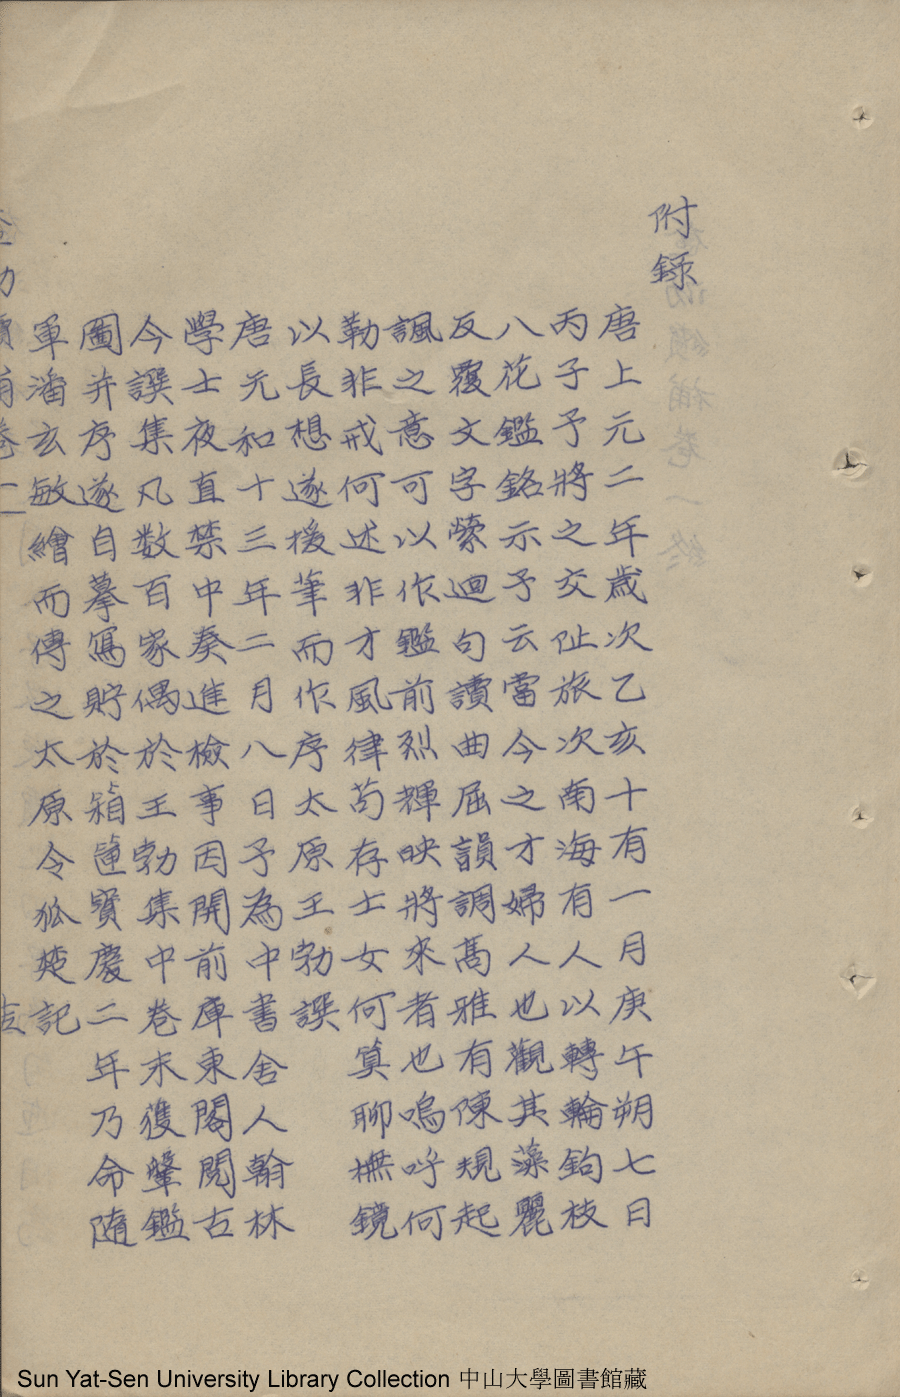 附錄
唐上元二年歲次乙亥十有一月庚午朔七日
丙子予將之交阯旅次南海有人以轉輪鉤枝
八花鑑銘示予云當今之才婦人也觀其藻麗
反覆文字縈迴句讀曲屈韻調高雅有陳規起
諷之意可以作鑑前烈輝映將來者也嗚呼何
勒非戒何述非才風律苟存士女何算聊撫鏡
以長想遂援筆而作序太原王勃譔
唐元和十三年二月八日予為中書舍人翰林
學士夜直禁中奏進檢事因開前庫東閣閱古
今譔集凡数百家偶於王勃集中卷末獲鞶鑑
圖并序遂自摹寫貯於箱篋寶慶二年乃命隨
軍潘玄敏繪而傳之太原令狐楚記
Sun Yat-Sen University Library Collection 中山大學圖書館藏